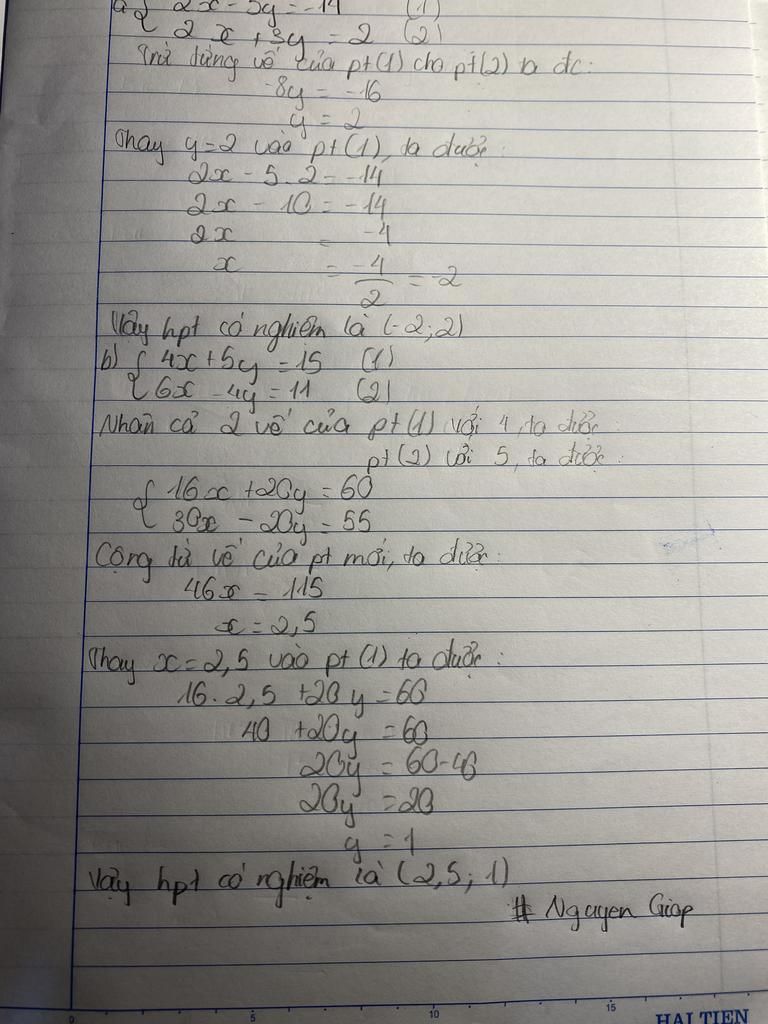 a { 2x - 5y = -14 (1)
{ 2x + 3y = 2 (2)
Trừ từng vế của pt(1) cho pt(2) ta đc:
-8y = -16
y = 2
Thay y=2 vào pt(1), ta được:
2x - 5.2 = -14
2x - 10 = -14
2x = -4
x = -4/2 = -2
Vậy hpt có nghiệm là (-2;2)
b) { 4x + 5y = 15 (1)
{ 6x - 4y = 11 (2)
Nhân cả 2 vế của pt(1) với 4, ta được:
pt(2) với 5, ta được:
{ 16x + 20y = 60
{ 30x - 20y = 55
Cộng từ vế của pt mới, ta được:
46x = 115
x = 2,5
Thay x = 2,5 vào pt(1) ta được:
16.2,5 + 20y = 60
40 + 20y = 60
20y = 60-40
20y = 20
y = 1
Vậy hpt có nghiệm là (2,5; 1)
# Nguyen Giap
0 5 10 15
HẢI TIẾN